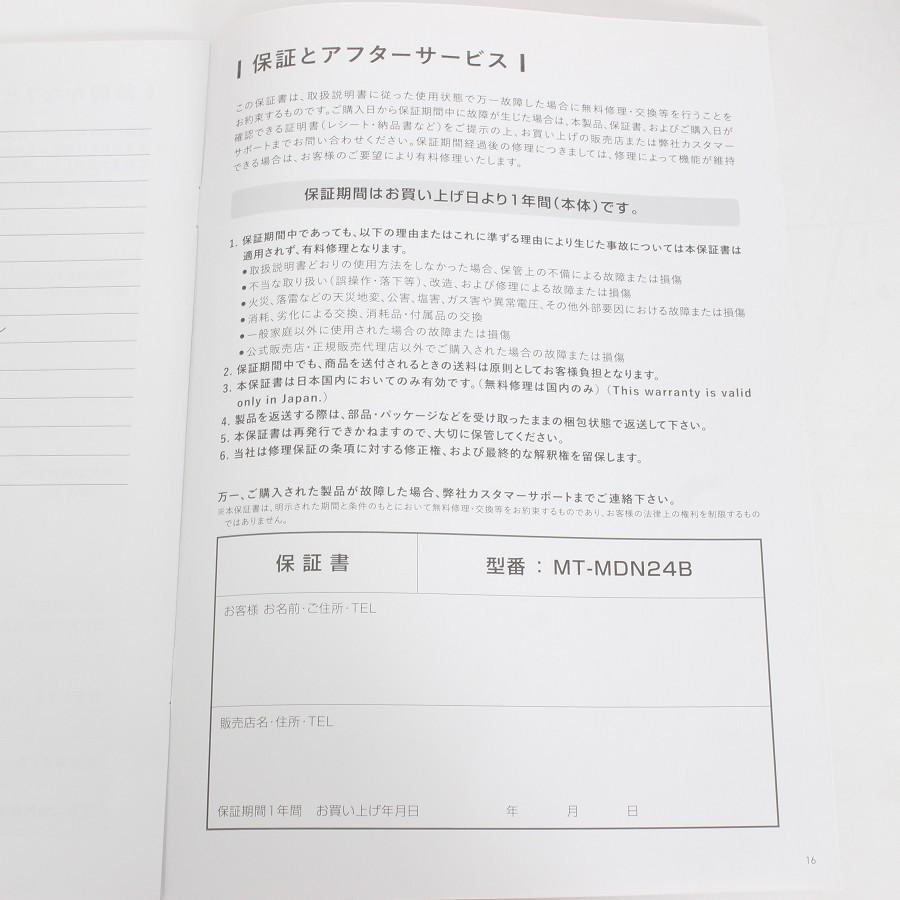 保証とアフターサービス
この保証書は、取扱説明書に従った使用状態で万一故障した場合に無料修理・交換等を行うことを
お約束するものです。ご購入日から保証期間中に故障が生じた場合は、本製品、保証書、およびご購入日が
確認できる証明書（レシート・納品書など）をご提示の上、お買い上げの販売店または弊社カスタマー
サポートまでお問い合わせください。保証期間経過後の修理につきましては、修理によって機能が維持
できる場合は、お客様のご要望により有料修理いたします。
保証期間はお買い上げ日より1年間（本体）です。
1. 保証期間中であっても、以下の理由またはこれに準ずる理由により生じた事故については本保証書は
適用されず、有料修理となります。
●取扱説明書どおりの使用方法をしなかった場合、保管上の不備による故障または損傷
●不当な取り扱い（誤操作・落下等）、改造、および修理による故障または損傷
●火災、落雷などの天災地変、公害、塩害、ガス害や異常電圧、その他外部要因における故障または損傷
●消耗、劣化による交換、消耗品・付属品の交換
●一般家庭以外に使用された場合の故障または損傷
●公式販売店・正規販売代理店以外でご購入された場合の故障または損傷
2. 保証期間中でも、商品を送付されるときの送料は原則としてお客様負担となります。
3. 本保証書は日本国内においてのみ有効です。（無料修理は国内のみ）（This warranty is valid
only in Japan.）
4. 製品を返送する際は、部品・パッケージなどを受け取ったままの梱包状態で返送して下さい。
5. 本保証書は再発行できかねますので、大切に保管してください。
6. 当社は修理保証の条項に対する修正権、および最終的な解釈権を留保します。
万一、ご購入された製品が故障した場合、弊社カスタマーサポートまでご連絡下さい。
※本保証書は、明示された期間と条件のもとにおいて無料修理・交換等をお約束するものであり、お客様の法律上の権利を制限するもの
ではありません。
保証書
型番：MT-MDN24B
お客様 お名前・ご住所・TEL
販売店名・住所・TEL
保証期間1年間 お買い上げ年月日 年 月 日
16